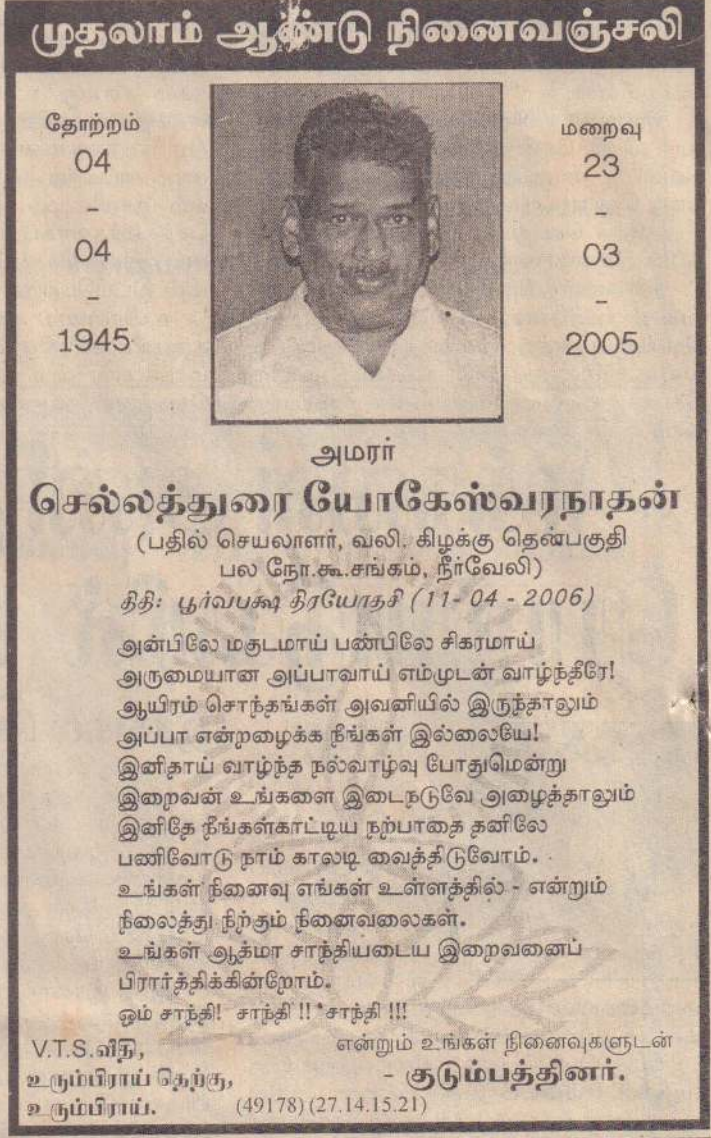 முதலாம் ஆண்டு நினைவஞ்சலி
தோற்றம்
04
-
04
-
1945
மறைவு
23
-
03
-
2005
அமரர்
செல்லத்துரை யோகேஸ்வரநாதன்
(பதில் செயலாளர், வலி. கிழக்கு தென்பகுதி
பல நோ.கூ.சங்கம், நீர்வேலி)
திதி: பூர்வபக்ஷ திரயோதசி (11- 04 - 2006)
அன்பிலே மகுடமாய் பண்பிலே சிகரமாய்
அருமையான அப்பாவாய் எம்முடன் வாழ்ந்தீரே!
ஆயிரம் சொந்தங்கள் அவனியில் இருந்தாலும்
அப்பா என்றழைக்க நீங்கள் இல்லையே!
இனிதாய் வாழ்ந்த நல்வாழ்வு போதுமென்று
இறைவன் உங்களை இடைநடுவே அழைத்தாலும்
இனிதே நீங்கள்காட்டிய நற்பாதை தனிலே
பணிவோடு நாம் காலடி வைத்திடுவோம்.
உங்கள் நினைவு எங்கள் உள்ளத்தில் - என்றும்
நிலைத்து நிற்கும் நினைவலைகள்.
உங்கள் ஆத்மா சாந்தியடைய இறைவனைப்
பிரார்த்திக்கின்றோம்.
ஓம் சாந்தி! சாந்தி !! சாந்தி !!!
என்றும் உங்கள் நினைவுகளுடன்
- குடும்பத்தினர்.
V.T.S.வீதி,
உரும்பிராய் தெற்கு,
உரும்பிராய்.
(49178) (27.14.15.21)